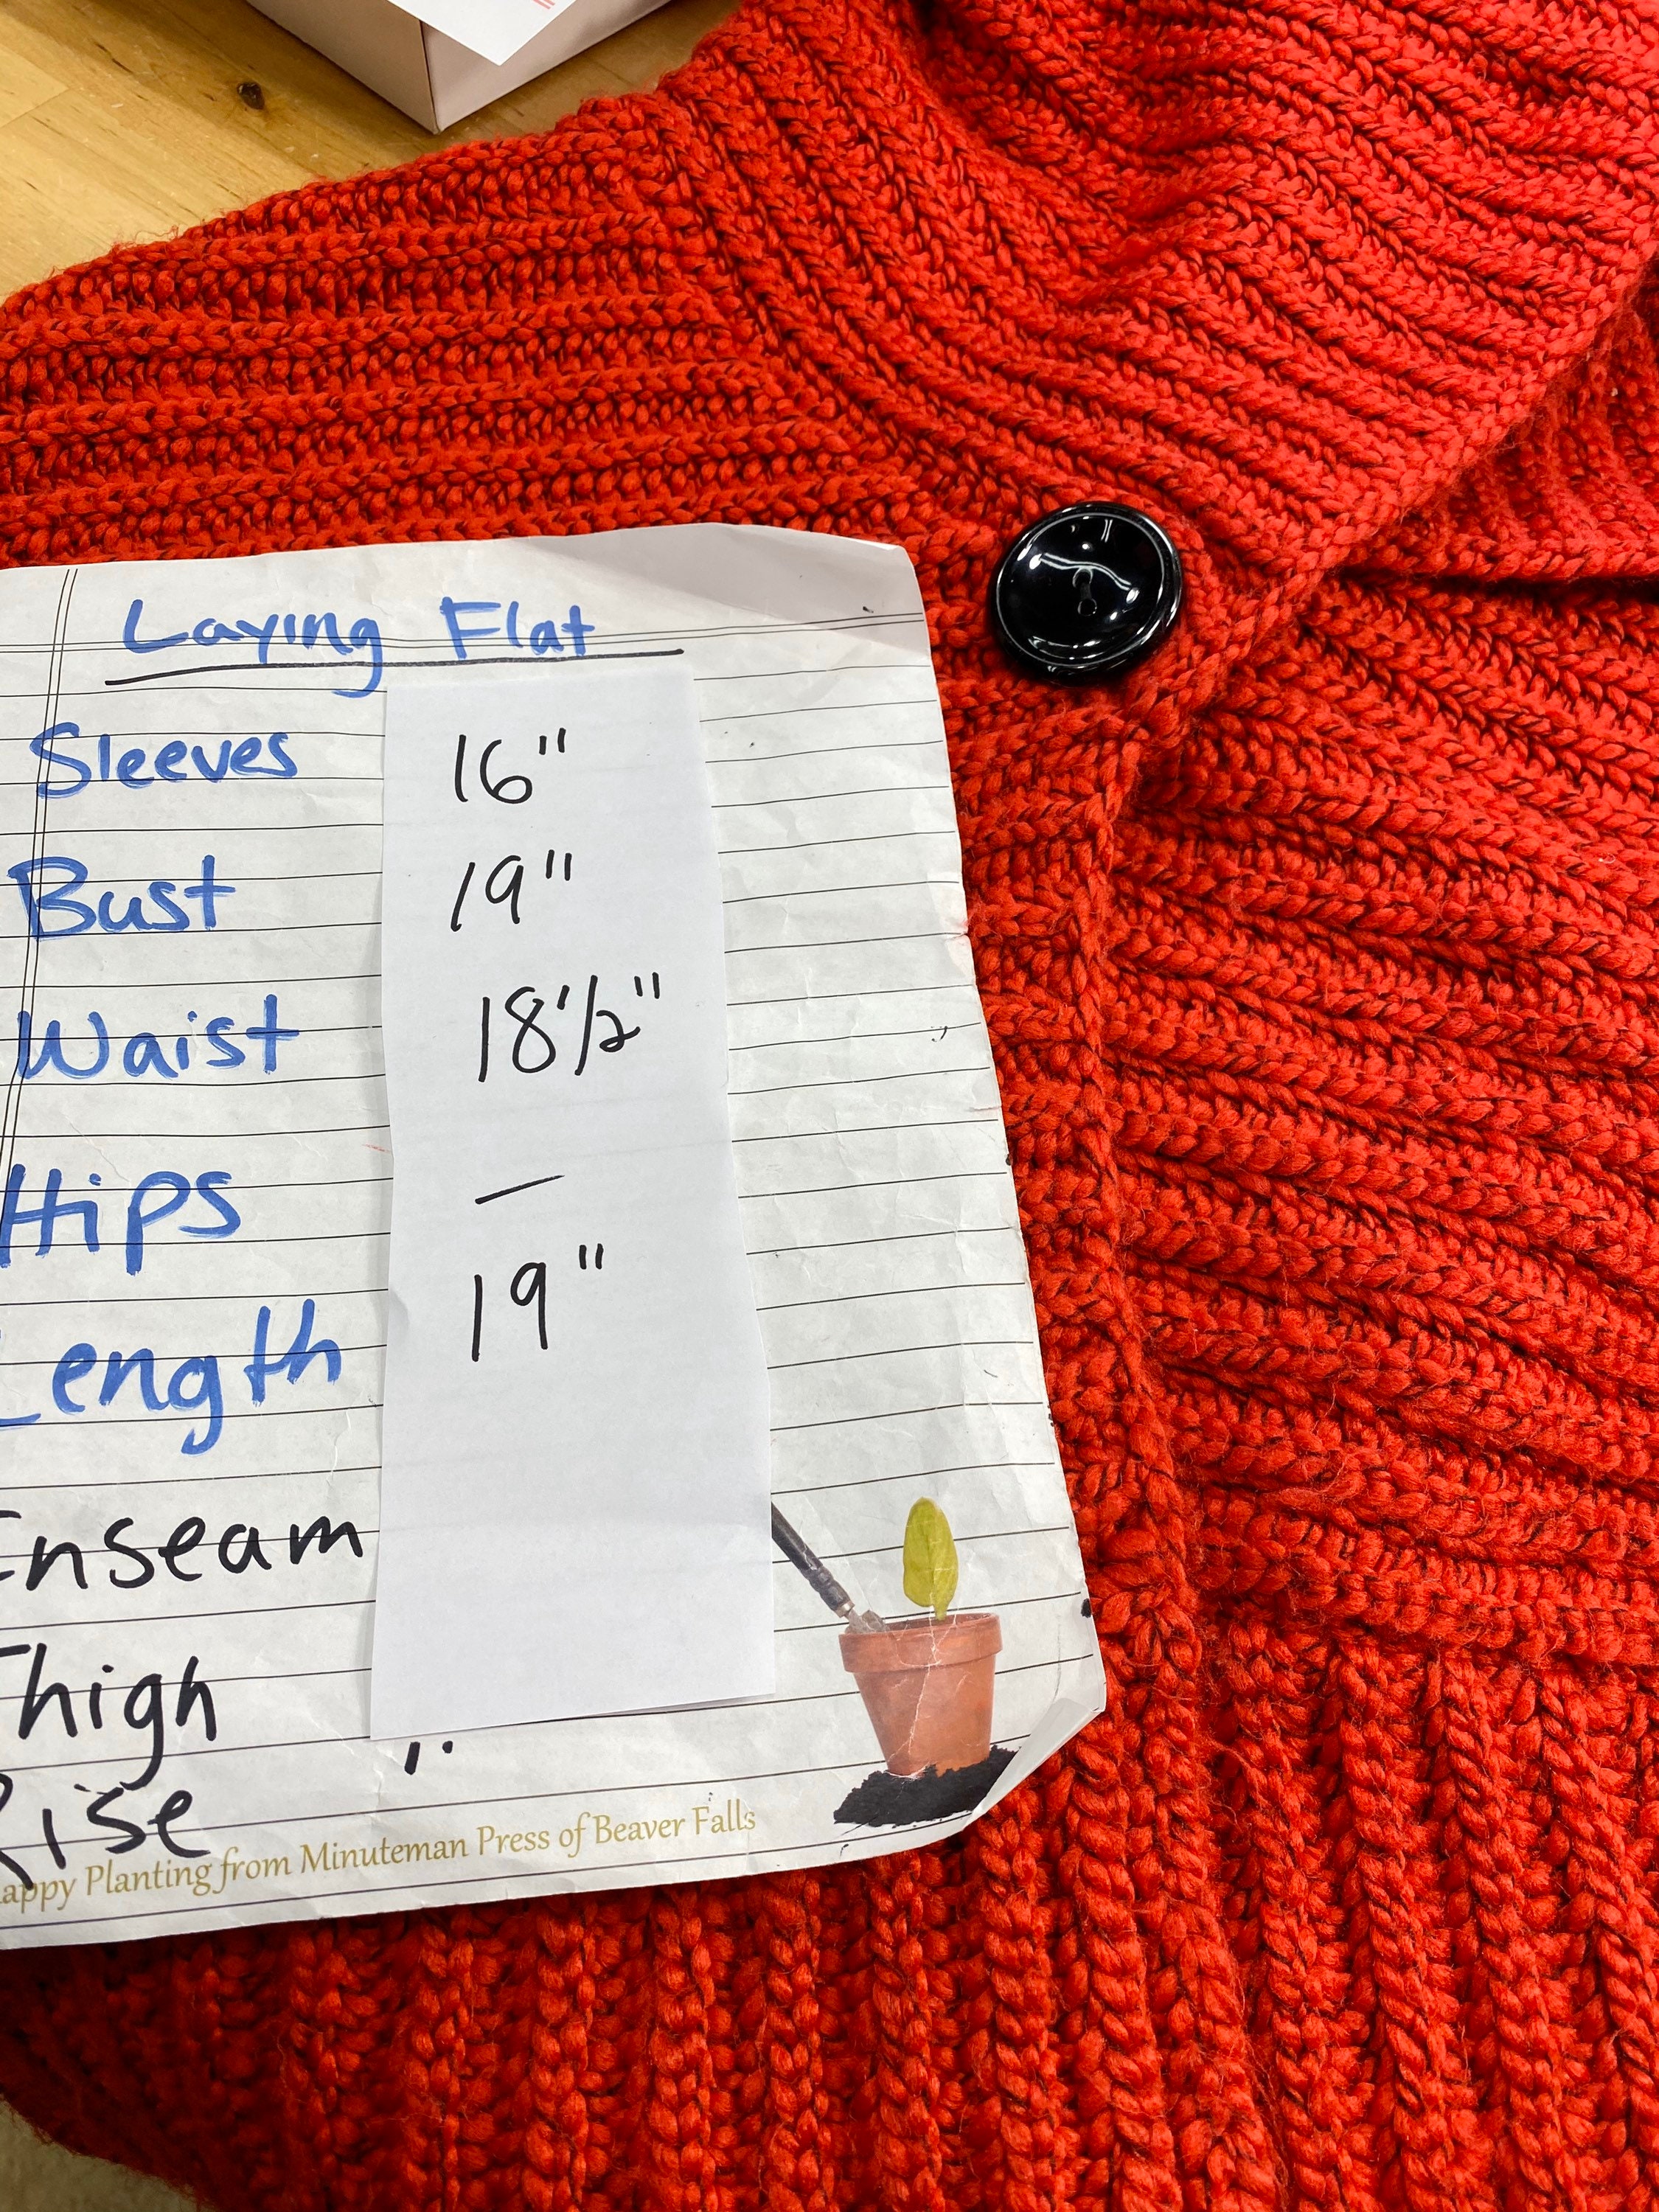 Laying Flat
Sleeves 16"
Bust 19"
Waist 18 1/2"
Hips —
Length 19"
Enseam
Thigh
Rise
appy Planting from Minuteman Press of Beaver Falls